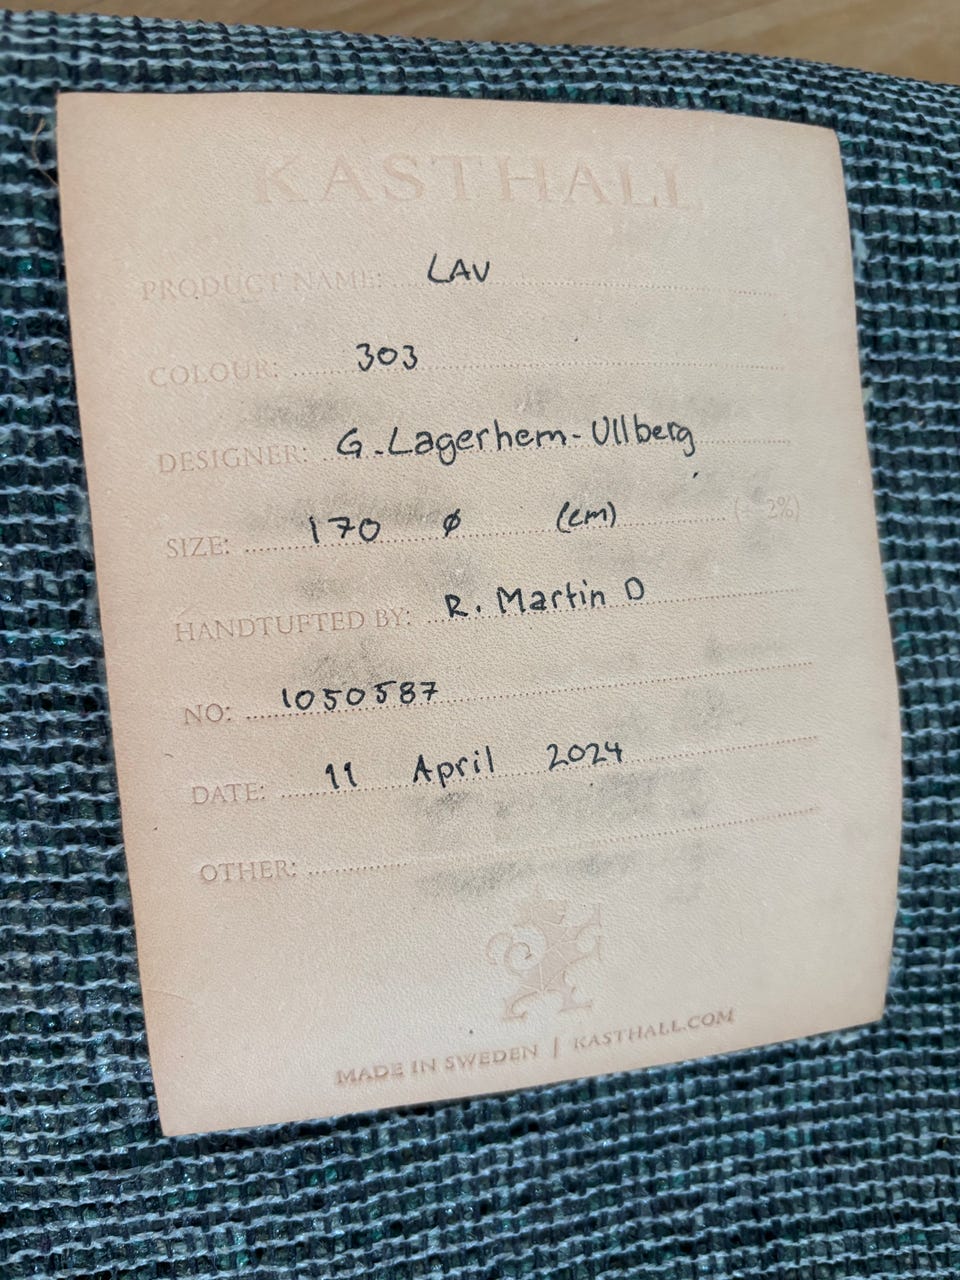 KASTHALL
PRODUCT NAME: LAV
COLOUR: 303
DESIGNER: G. Lagerhem-Ullberg
SIZE: 170 ø (cm) (± 2%)
HANDTUFTED BY: R. Martin D
NO: 1050587
DATE: 11 April 2024
OTHER:
MADE IN SWEDEN | KASTHALL.COM